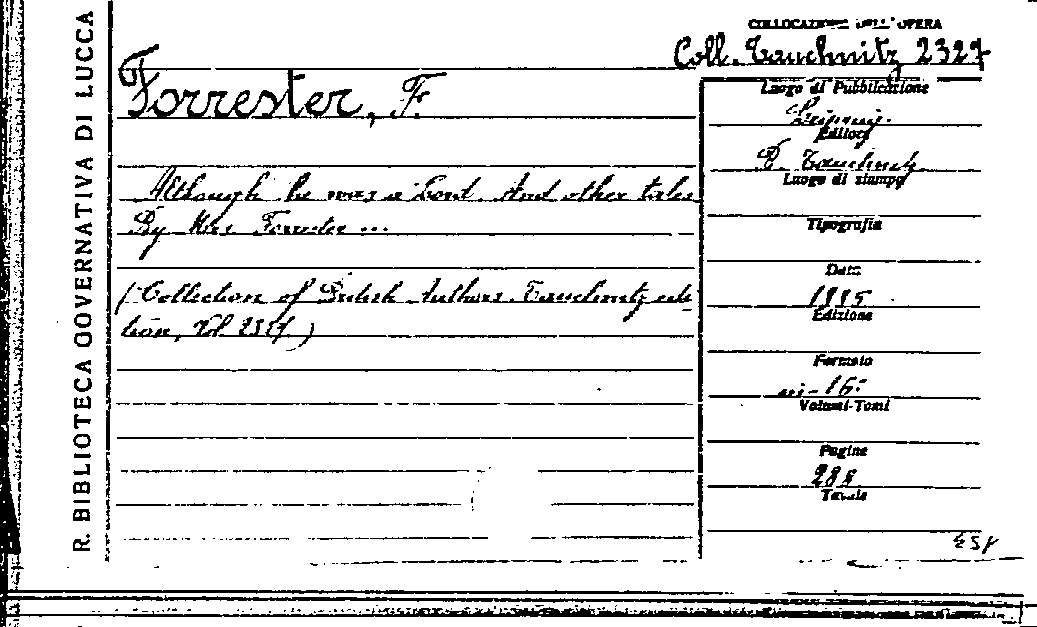 R. BIBLIOTECA GOVERNATIVA DI LUCCA
COLLOCAZIONE DELL'OPERA
Coll. Tauchnitz 2327
Forrester, F.
Although he was a Lord. And other tales
By Mrs Forrester ...
(Collection of British Authors. Tauchnitz edi-
tion, Vol.
Luogo di Pubblicazione
Leipzig.
Editore
B. Tauchnitz
Luogo di stampa
Tipografia
Data
1885
Edizione
Formato
in-16°
Volumi-Tomi
Pagine
288
Tavole